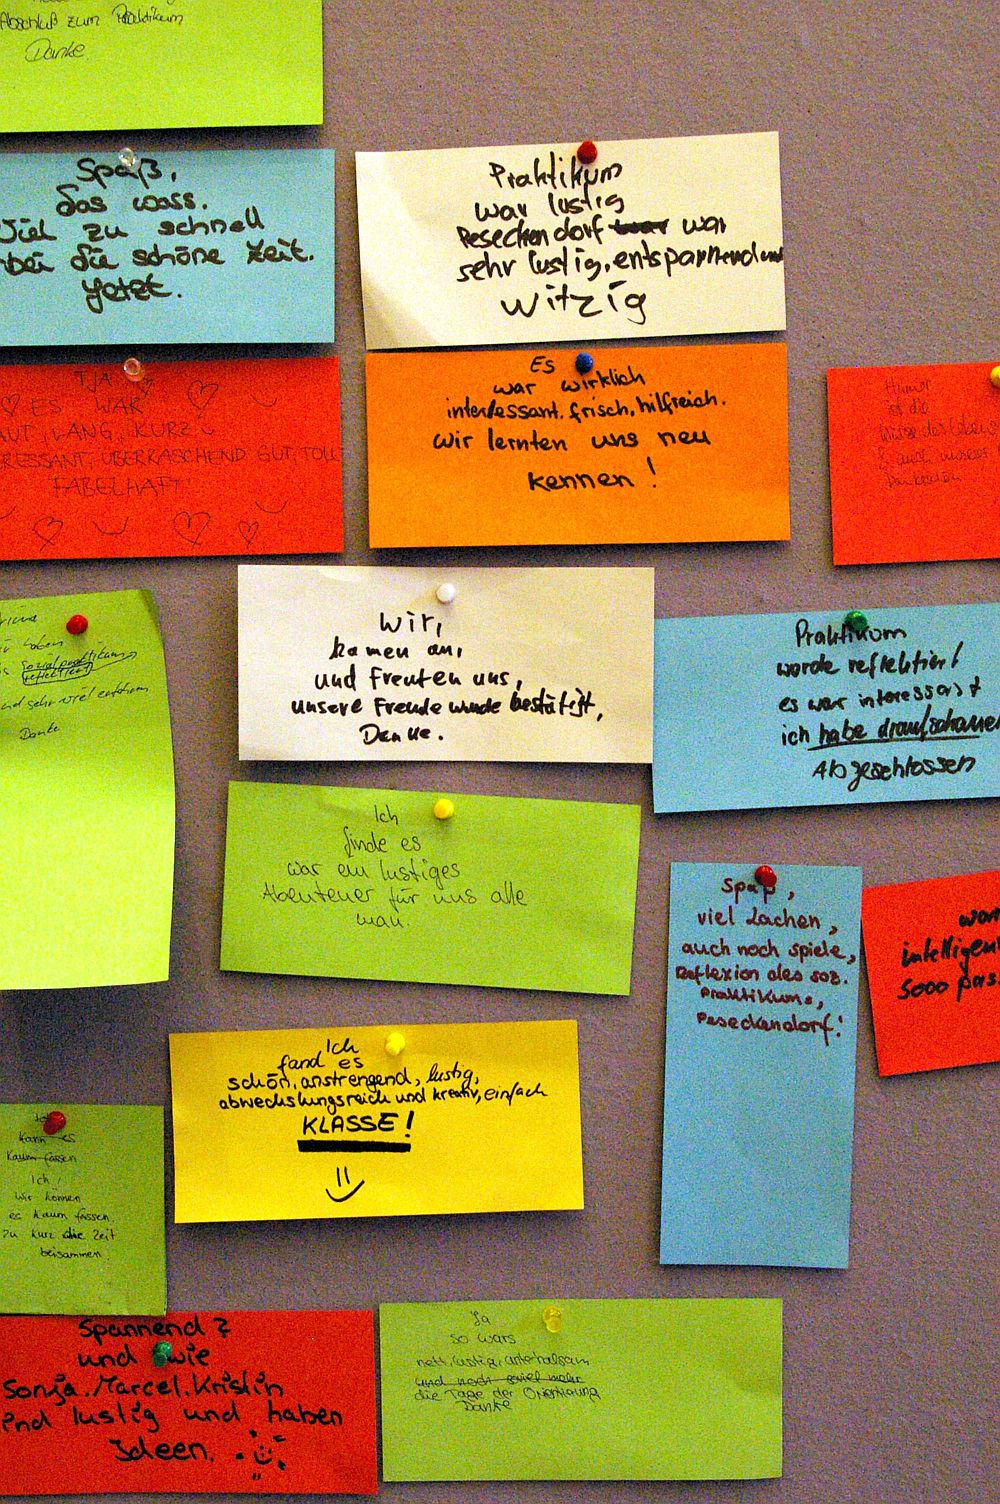 Abschluß zum Praktikum
Danke
Spaß,
das wars.
Viel zu schnell
bei die schöne Zeit.
Jetzt.
Praktikum
war lustig
Peseckendorf war war
sehr lustig, entspannend und
witzig
TJA
ES WAR
LAUT, LANG, KURZ
RESSANT, ÜBERRASCHEND GUT, TOLL
FABELHAFT!
Es
war wirklich
interessant, frisch, hilfreich.
wir lernten uns neu
kennen!
Humor
ist die
Würze des Lebens
& auch unseres
haben
Sozialpraktikum
reflektiert
und sehr viel
Danke
Wir,
kamen an,
und freuten uns,
unsere Freude wurde bestätigt,
Danke.
Praktikum
worde reflektiert
es war interessant
ich habe draufschauen
Abgeschlossen
Ich
finde es
war ein lustiges
Abenteuer für uns alle
man.
Spaß,
viel Lachen,
auch noch Spiele,
Reflexion des soz.
Praktikums,
Peseckendorf!
war
intelligen
5000 pas
Ich
fand es
schön, anstrengend, lustig,
abwechslungsreich und kreativ, einfach
KLASSE!
kann es
kaum fassen
Ich!
wir können
es kaum fassen
zu kurz die Zeit
beisammen
Spannend?
und wie
Sonja. Marcel. Kristin
ind lustig und haben
Ideen.
Ja
so wars
nett, lustig, unterhalsam
und noch soviel mehr
die Tage der Orientierung
Danke